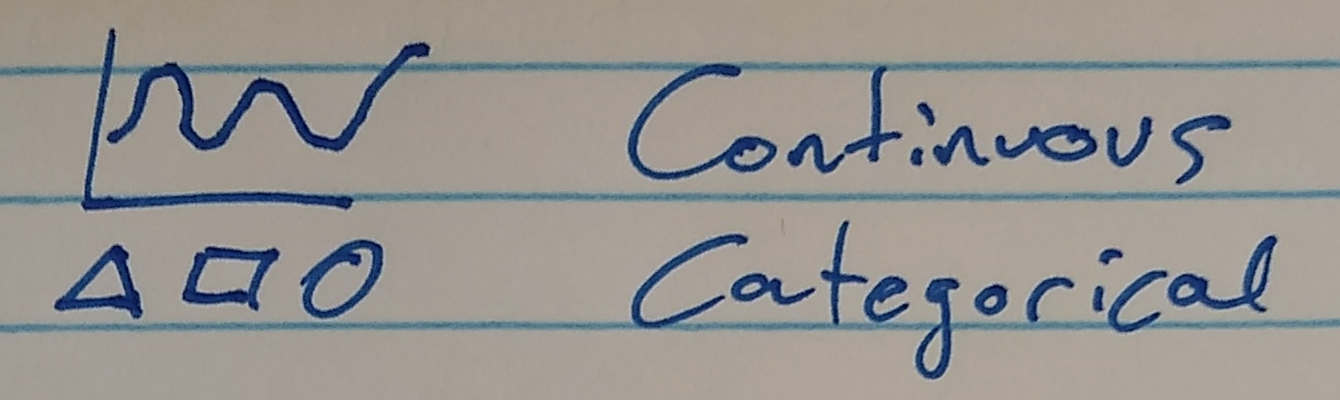 Continuous
Categorical